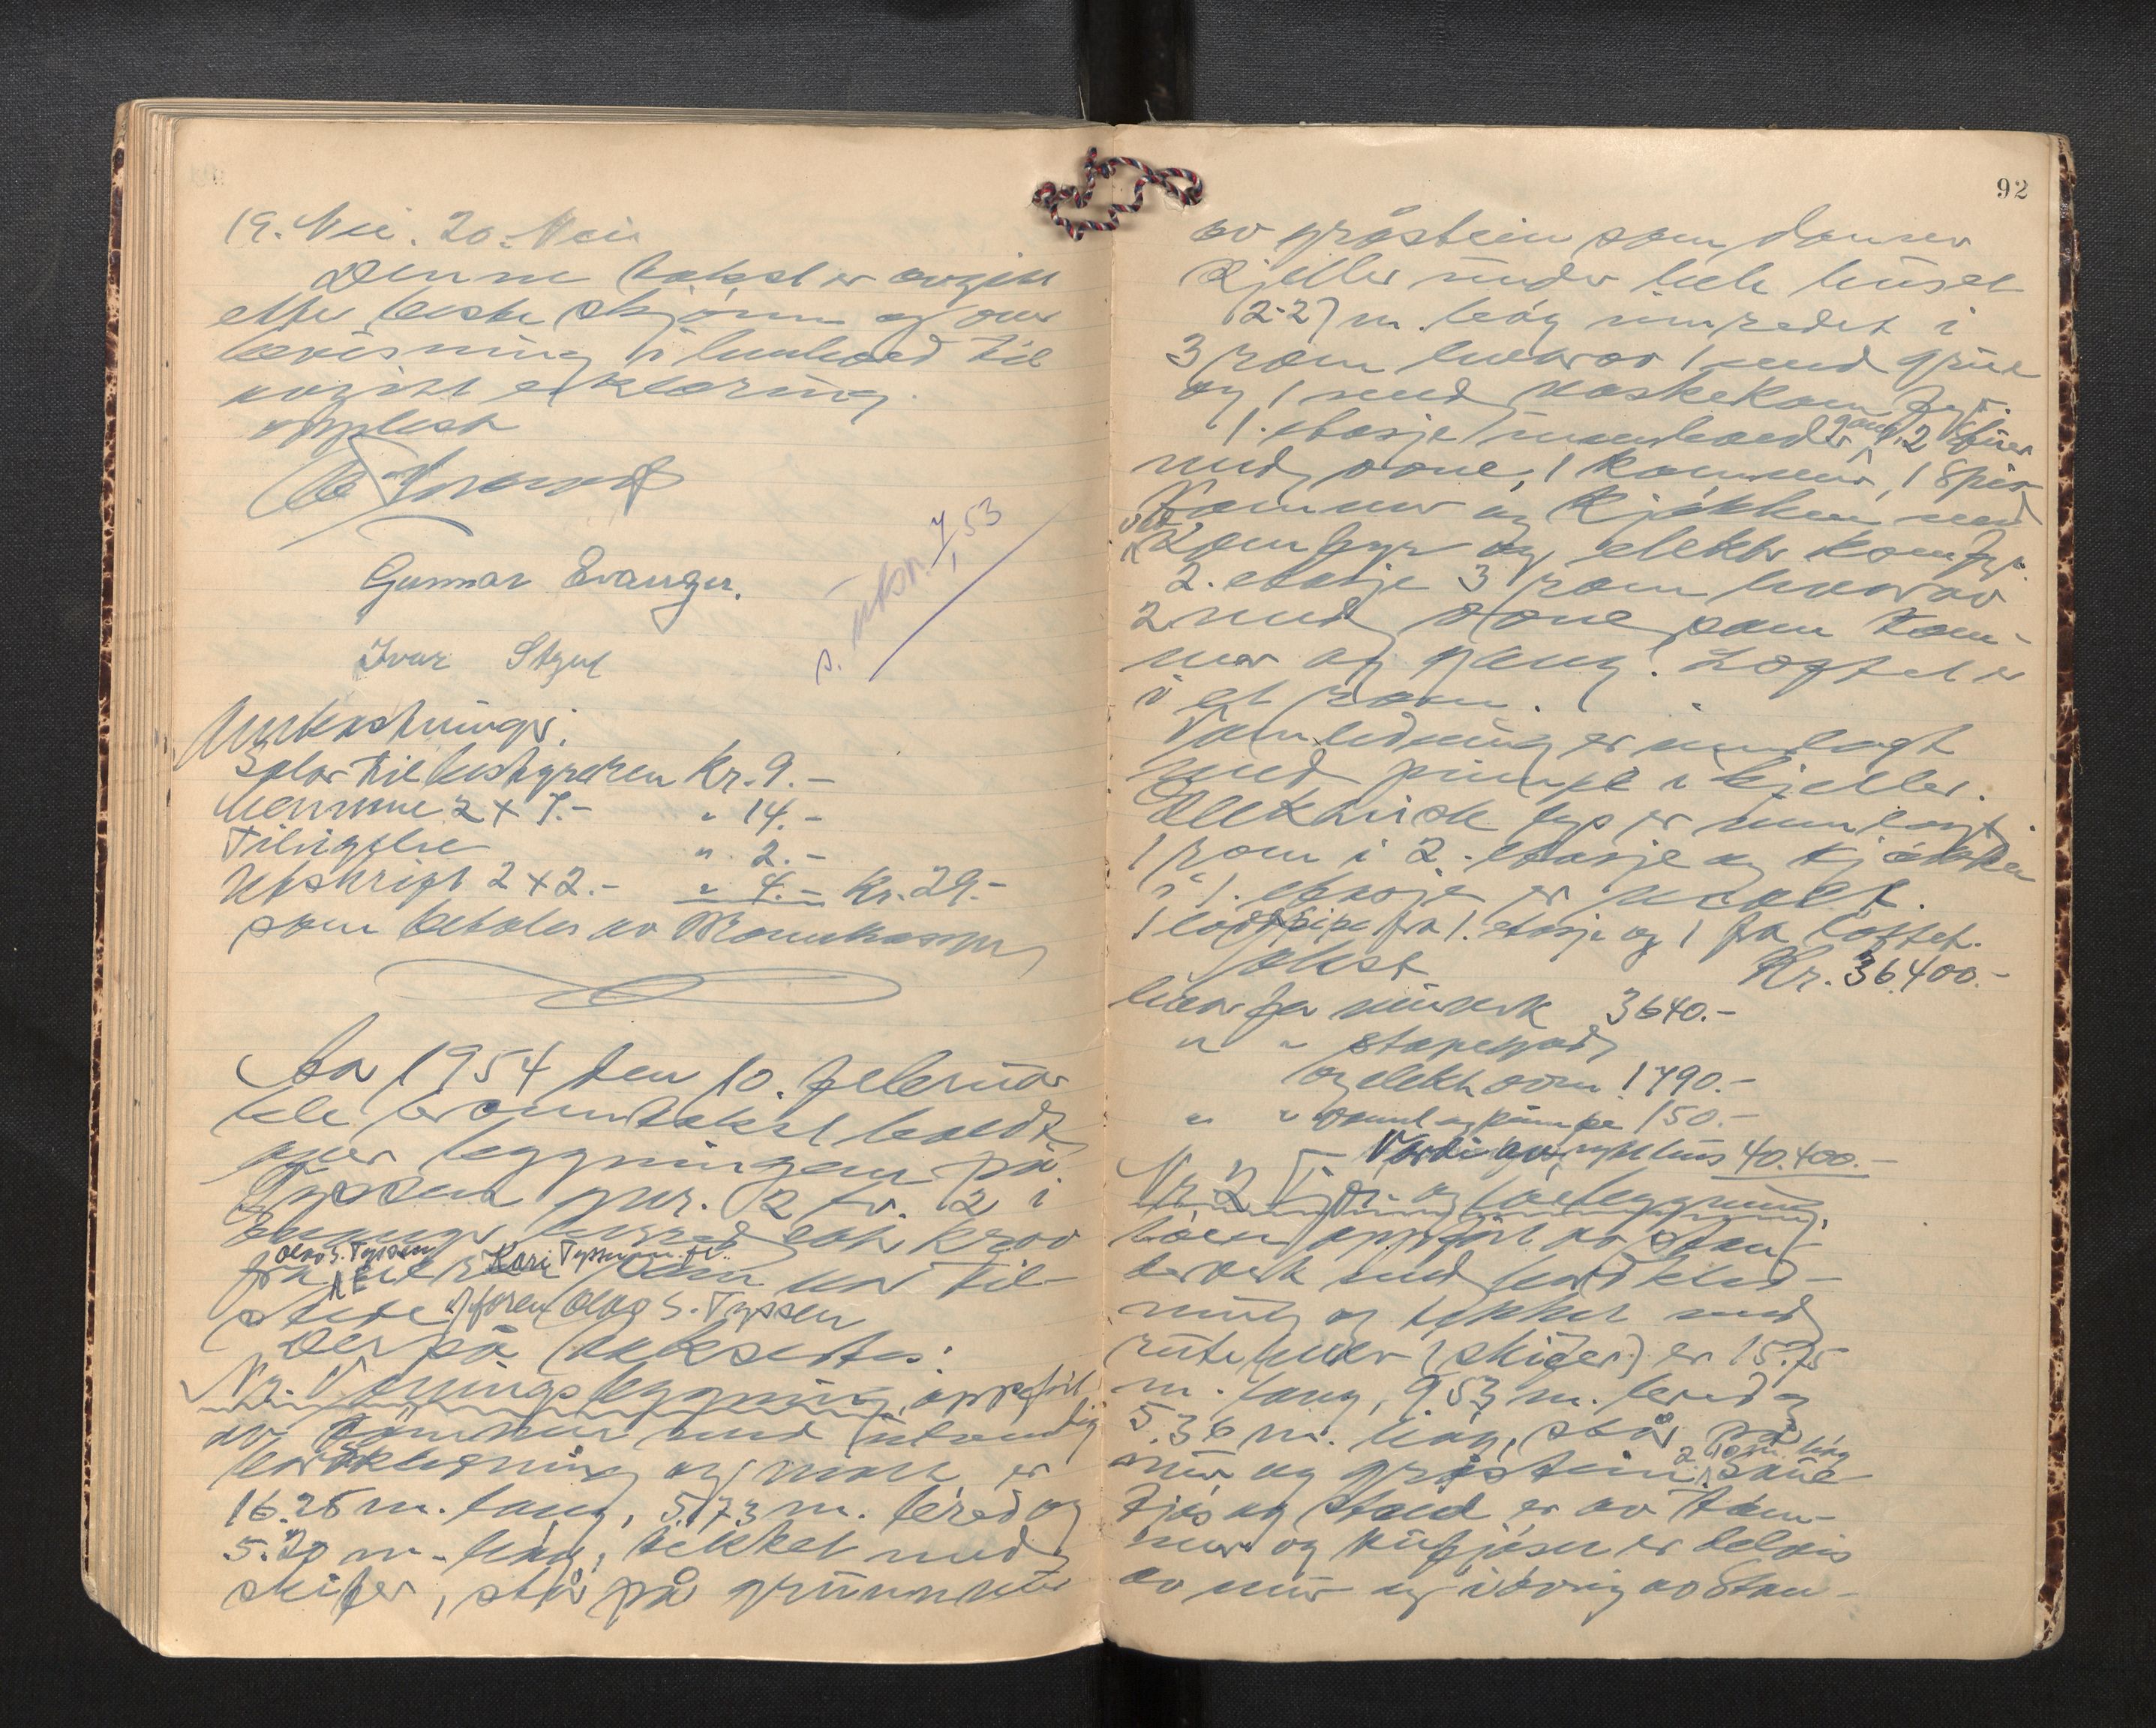 19. Nei. 20. Nei.
Denne takst er avgitt
etter beste skjønn og over
bevisning i henhold til
avgitt erklæring.
opplest
Gunnar Evanger.
Ivar
s. utskr. 53
Omkostninger:
Salær til bestyreren Kr. 9.-
Mennene 2 x 7.- " 14.-
Tilsigelse " 2.-
Utskrift 2 x 2.- " 4.- Kr. 29.-
som betales av
Aar 1954 den 10. februar
ble branntakst holdt
over bygningene på
Tyssen gnr. 2 br. 2 i
herred etter krav
Olav S. Tyssen Kari Tyssen
fra som var til-
stede Olav S. Tyssen
Derpå taksertes:
Nr. 1 Våningsbygning, oppført
av tømmer med utvendig
bordkledning og malt er
16.25 m. lang, 5.73 m. bred og
5.20 m. høg, tekket med
skifer, står på grunnmur
92
av gråstein som danner
kjeller under hele huset
(2.2) m. høg innredet i
3 rom hvorav 1 med grue
og 1 med vaskekomfyr.
1. etasje inneholder gang, 2 stuer
med ovne, 1 kammer, 1 spis-
kammer og kjøkken med
ved
komfyr og elektr. komfyr.
2. etasje 3 rom hvorav
2 med ovne som kam-
mer og gang. Loftet er
i et rom.
Vannledning er innlagt
med pumpe i kjeller.
Elektrisk lys er innlagt.
1 rom i 2. etasje og kjøkken
i 1. etasje er malt.
1 fra 1. etasje og 1 fra loftet.
Takst Kr. 36.400.-
hvorav for murverk 3640.-
" "
og elektr. ovn 1790.-
" " vannl. og pumpe 150.-
Verdi av nytt hus 40.400.-
Nr. 2 Fjøs- og løebygning,
løen oppført av stan-
derverk med bordkled-
ning og tekket med
rutehelle (skifer) er 15.75
m. lang, 9.53 m. bred og
5.36 m. høg, står på
mur og gråstein 2 m høg
fjøs og stall er av tøm-
mer og kufjøset er delvis
av mur og i øvrig av stan-